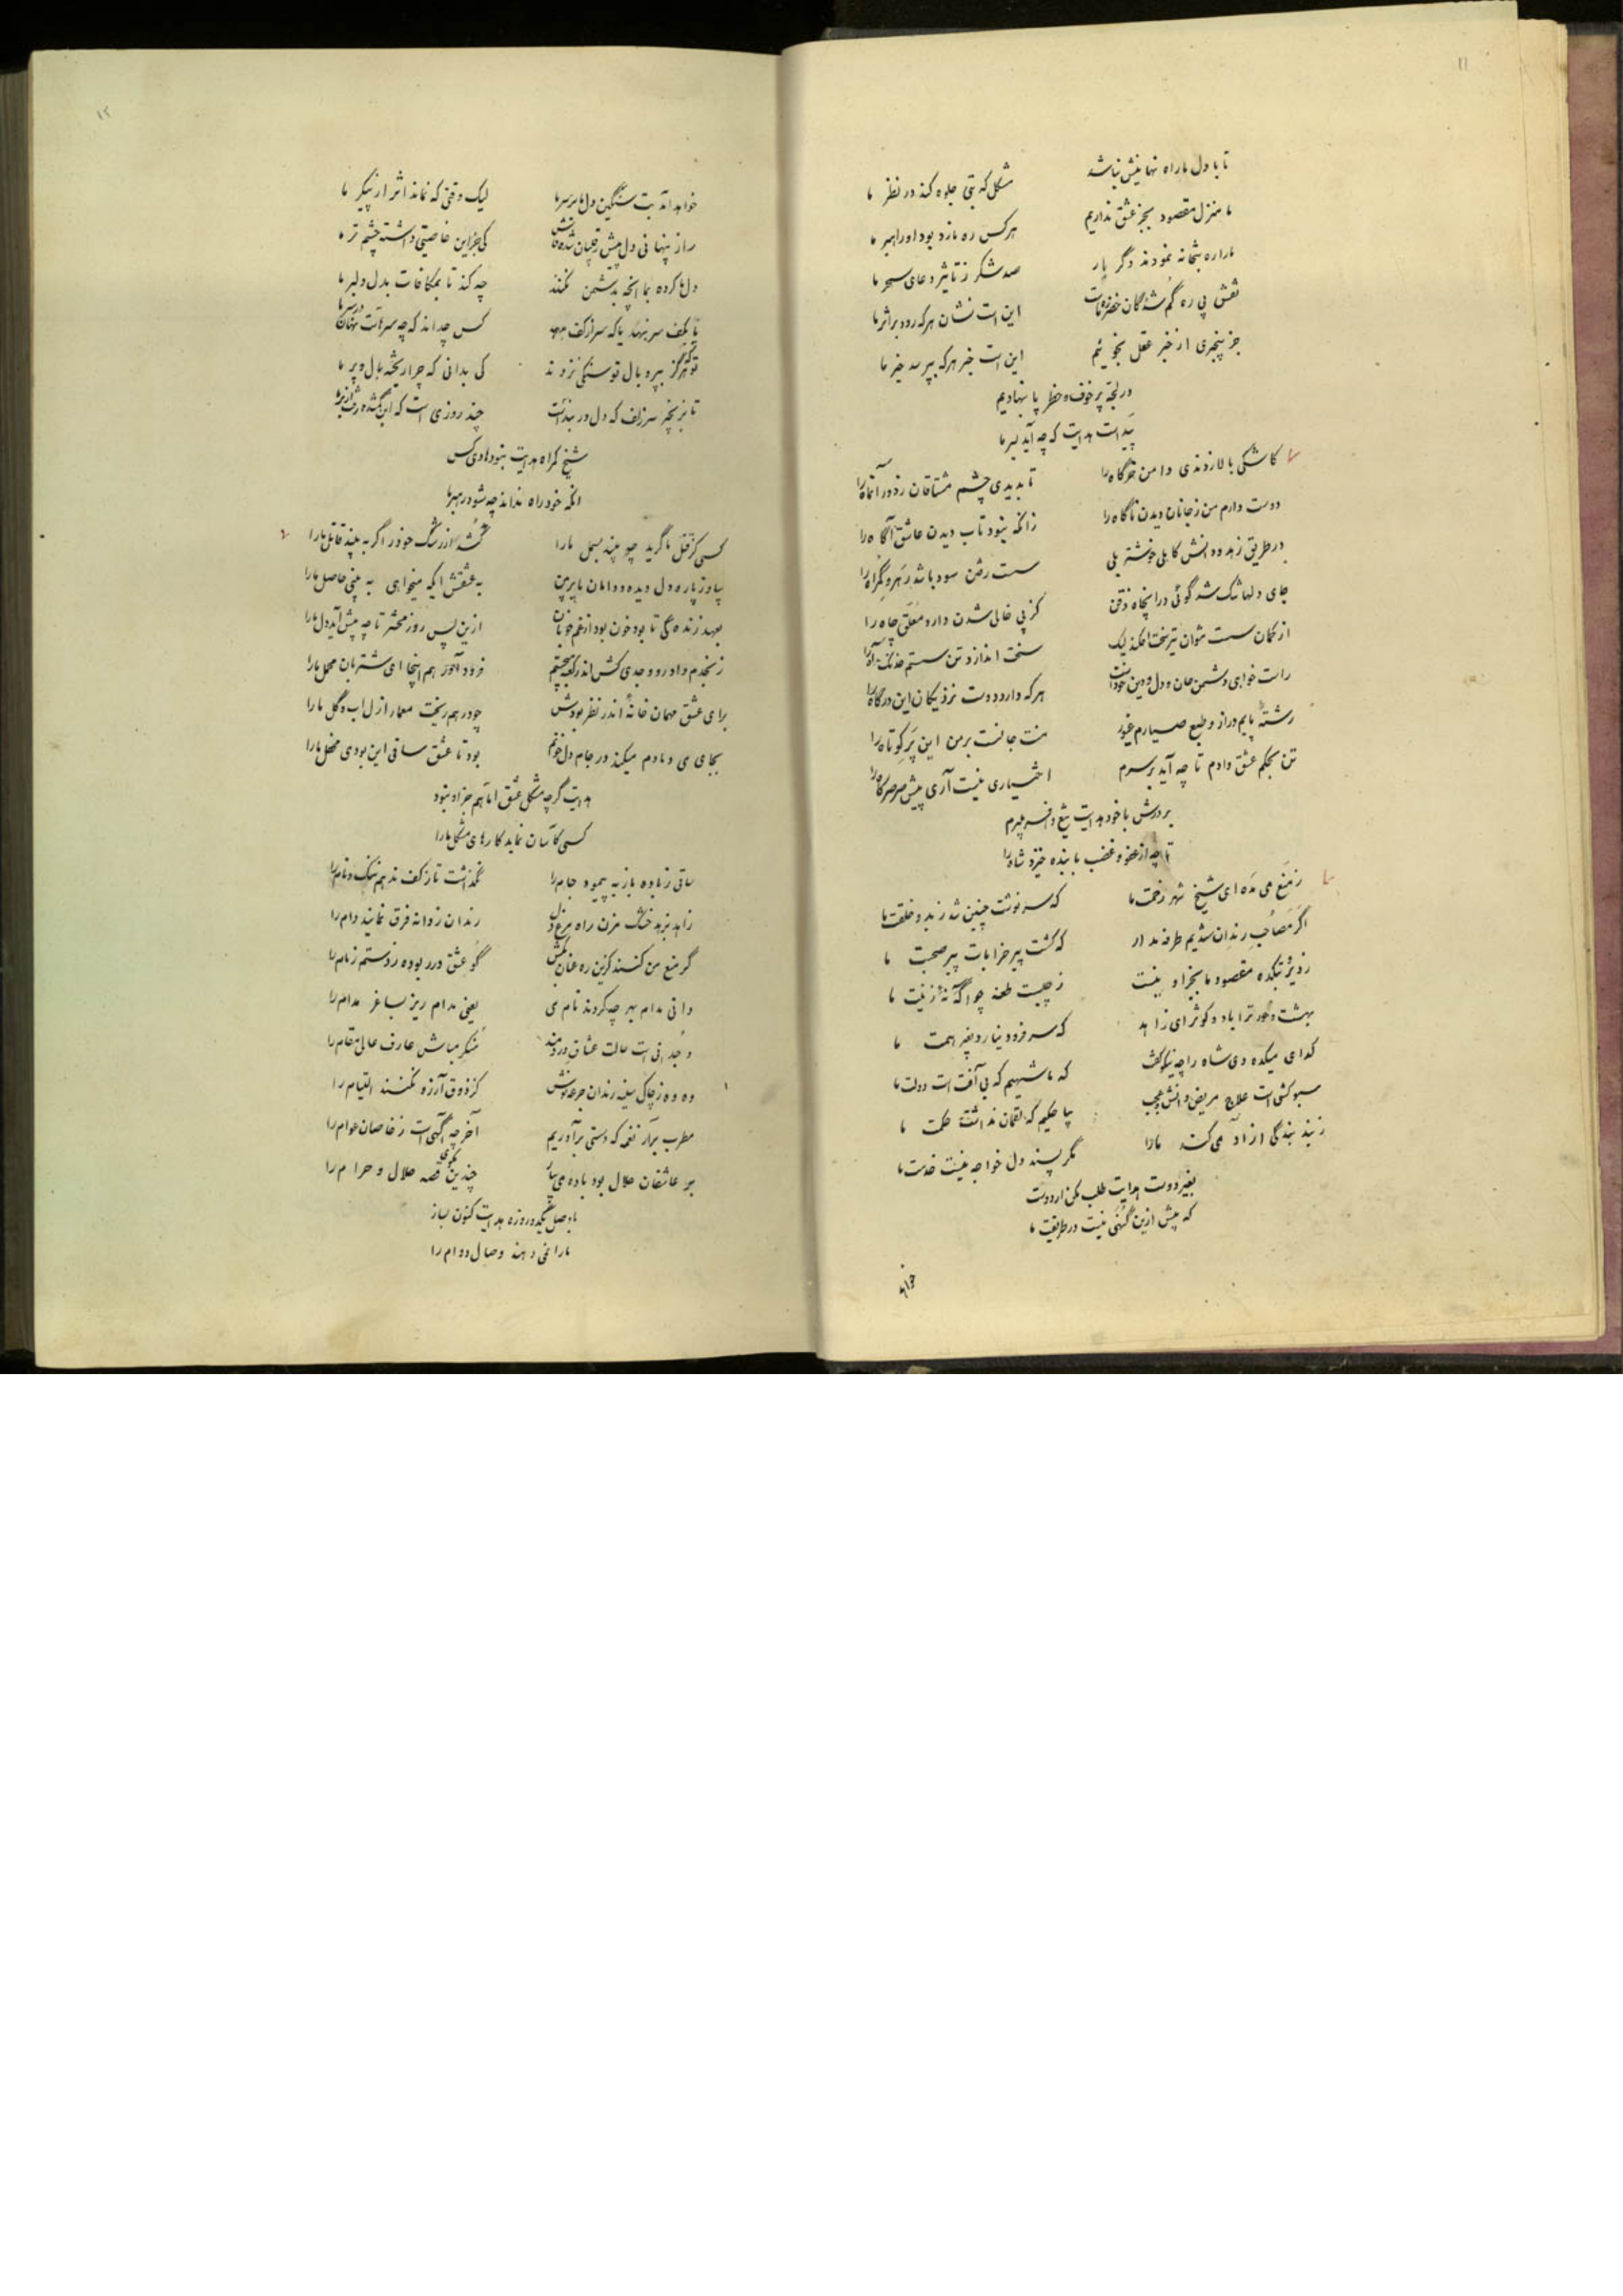 ۱۱
تا با دل ما راه نهانیش نباشد مشکل که بتی جلوه کند در نظر ما
ما منزل مقصود بجز عشق نداریم هر کس ره ما زد بود او راهبر ما
ما را ره بتخانه نمودند دگر بار صد شکر ز تاثیر دعای سحر ما
نقش پی ره گم شدگان خضر ره ماست این است نشان هر که رود بر اثر ما
جز بیخبری از خبر عقل نجوئیم این است خبر هر که بپرسد خبر ما
در لجه پر خوف و خطر پا بنهادیم
پیداست هدایت که چه آید بسر ما
کاشکی بالا زدندی دامن خرگاه را تا بدیدی چشم مشتاقان ز دور آنماه را
دوست دارم من ز جانان دیدن ناگاه را زانکه نبود تاب دیدن عاشق آگاه را
در طریق زهد و دانش کاهلی خوشتر بلی سست رفتن سود باشد رهرو گمراه را
جای دلها شد گوئی در آنچاه ذقن کز پی خالی شدن دارد معلق چاه را
از کمان سست نتوان تیر سخت افکند لیک سخت اندازد تن سستم خدنگ آه را
راست خواهی دشمن جان و دل و دین خوداست هر که دارد دوست نزدیکان این درگاه را
رشته پایم دراز و طبع صیادم غیور منت جانست بر من این پر کوتاه را
تن بحکم عشق دادم تا چه آید بر سرم اختیاری نیست آری پیش صرصر کاه را
بر درش با خود هدایت تیغ و افسر میبرم
تا چه از عفو و غضب با بنده خیزد شاه را
ز منع می مده ای شیخ شهر زحمت ما که سرنوشت چنین شد ز بدو خلقت ما
اگر مصاحب رندان شدیم طرفه مدار که گشت پیر خرابات پیر صحبت ما
ز دیر و بتکده مقصود ما بجز او نیست ز چیست طعنه چو آگه نهٔ ز نیت ما
بهشت و حور ترا باد و کوثر ای زاهد که سر فرود نیارد بغیر همت ما
گدای میکده دی شاه را چه نیکو گفت که ما شهیم که بی آفت است دولت ما
سبو کشی است علاج مریض دانش و عجب بیا حکیم که لقمان نداشت حکمت ما
ز بند بندگی آزاد می کند ما را مگر پسند دل خواجه نیست خدمت ما
بغیر دوست هدایت طلب مکن از دوست
که بیش ازین گنهی نیست در طریقت ما
خواهد
۱۲
خواهد آمد بت سنگین دل ما بر سر ما لیک وقتی که نماند اثر از پیکر ما
راز پنهانی دل پیش رقیبان شده فاش کی جز این خاصیتی داشته چشم تر ما
دل ما کرده بما آنچه بدشمن نکند چه کند تا بمکافات بدل دلبر ما
پا بکف سر بنهد یا که سر از کف بدهد کس چه داند که چه سرهاست نهان در سر ما
تو که هرگز بپر و بال تو سنگی نزدند کی بدانی که چرا ریخته بال و پر ما
تا بزنجیر سر زلف که دل در بند است چند روزی است که این گمشده رفت از بر ما
شیخ گمراه هدایت نبود هادی کس
آنکه خود راه نداند چه شود رهبر ما
کسی کز قتل ما گرید چو بیند بسمل ما را کشد از رشک خود را گر به بیند قاتل ما را
بیاور پاره دل دیده و دامان ما پر بین به عشقش ایکه میخواهی به بینی حاصل ما را
بعهد زندگی تا بود خون بود از غم خوبان ازین پس روز محشر تا چه پیش آید دل ما را
فرود آور هم اینجا ای شتربان محمل ما را
برای عشق مهمان خانهٔ اندر نظر بودش چو در هم ریخت معمار ازل آب و گل ما را
بجای می دمادم میکند در جام دل خونم بود تا عشق ساقی این بودی محفل ما را
هدایت گر چه مشکل عشق اما هم جز او نبود
کسی کآسان نماید کارهای مشکل ما را
ساقی ز باده باز به پیمود جام را نگذاشت تا ز کف ندهم ننگ و نام را
زاهد بزهد خشک مزن راه مرغ دل رندان ز دانه فرق نمایند دام را
گر منع من کنند کزین ره عنان بکش گو عشق در ربوده ز دستم زمام را
دانی مدام بهر چه کردند نام می یعنی مدام ریز بساغر مدام را
وجدانی است حالت عشاق دردمند منکر مباش عارف عالی مقام را
وه وه ز چاک سینه رندان جرعه نوش کز ذوق آرزو نکنند التیام را
مطرب برآر نغمه که دستی برآوریم آخر چه آگهی است ز خاصان عوام را
بر عاشقان حلال بود باده می بیار چندین مگوی قصه حلال و حرام را
با وصل یکدو روزه هدایت کنون بساز
ما را نمی دهند وصال دوام را